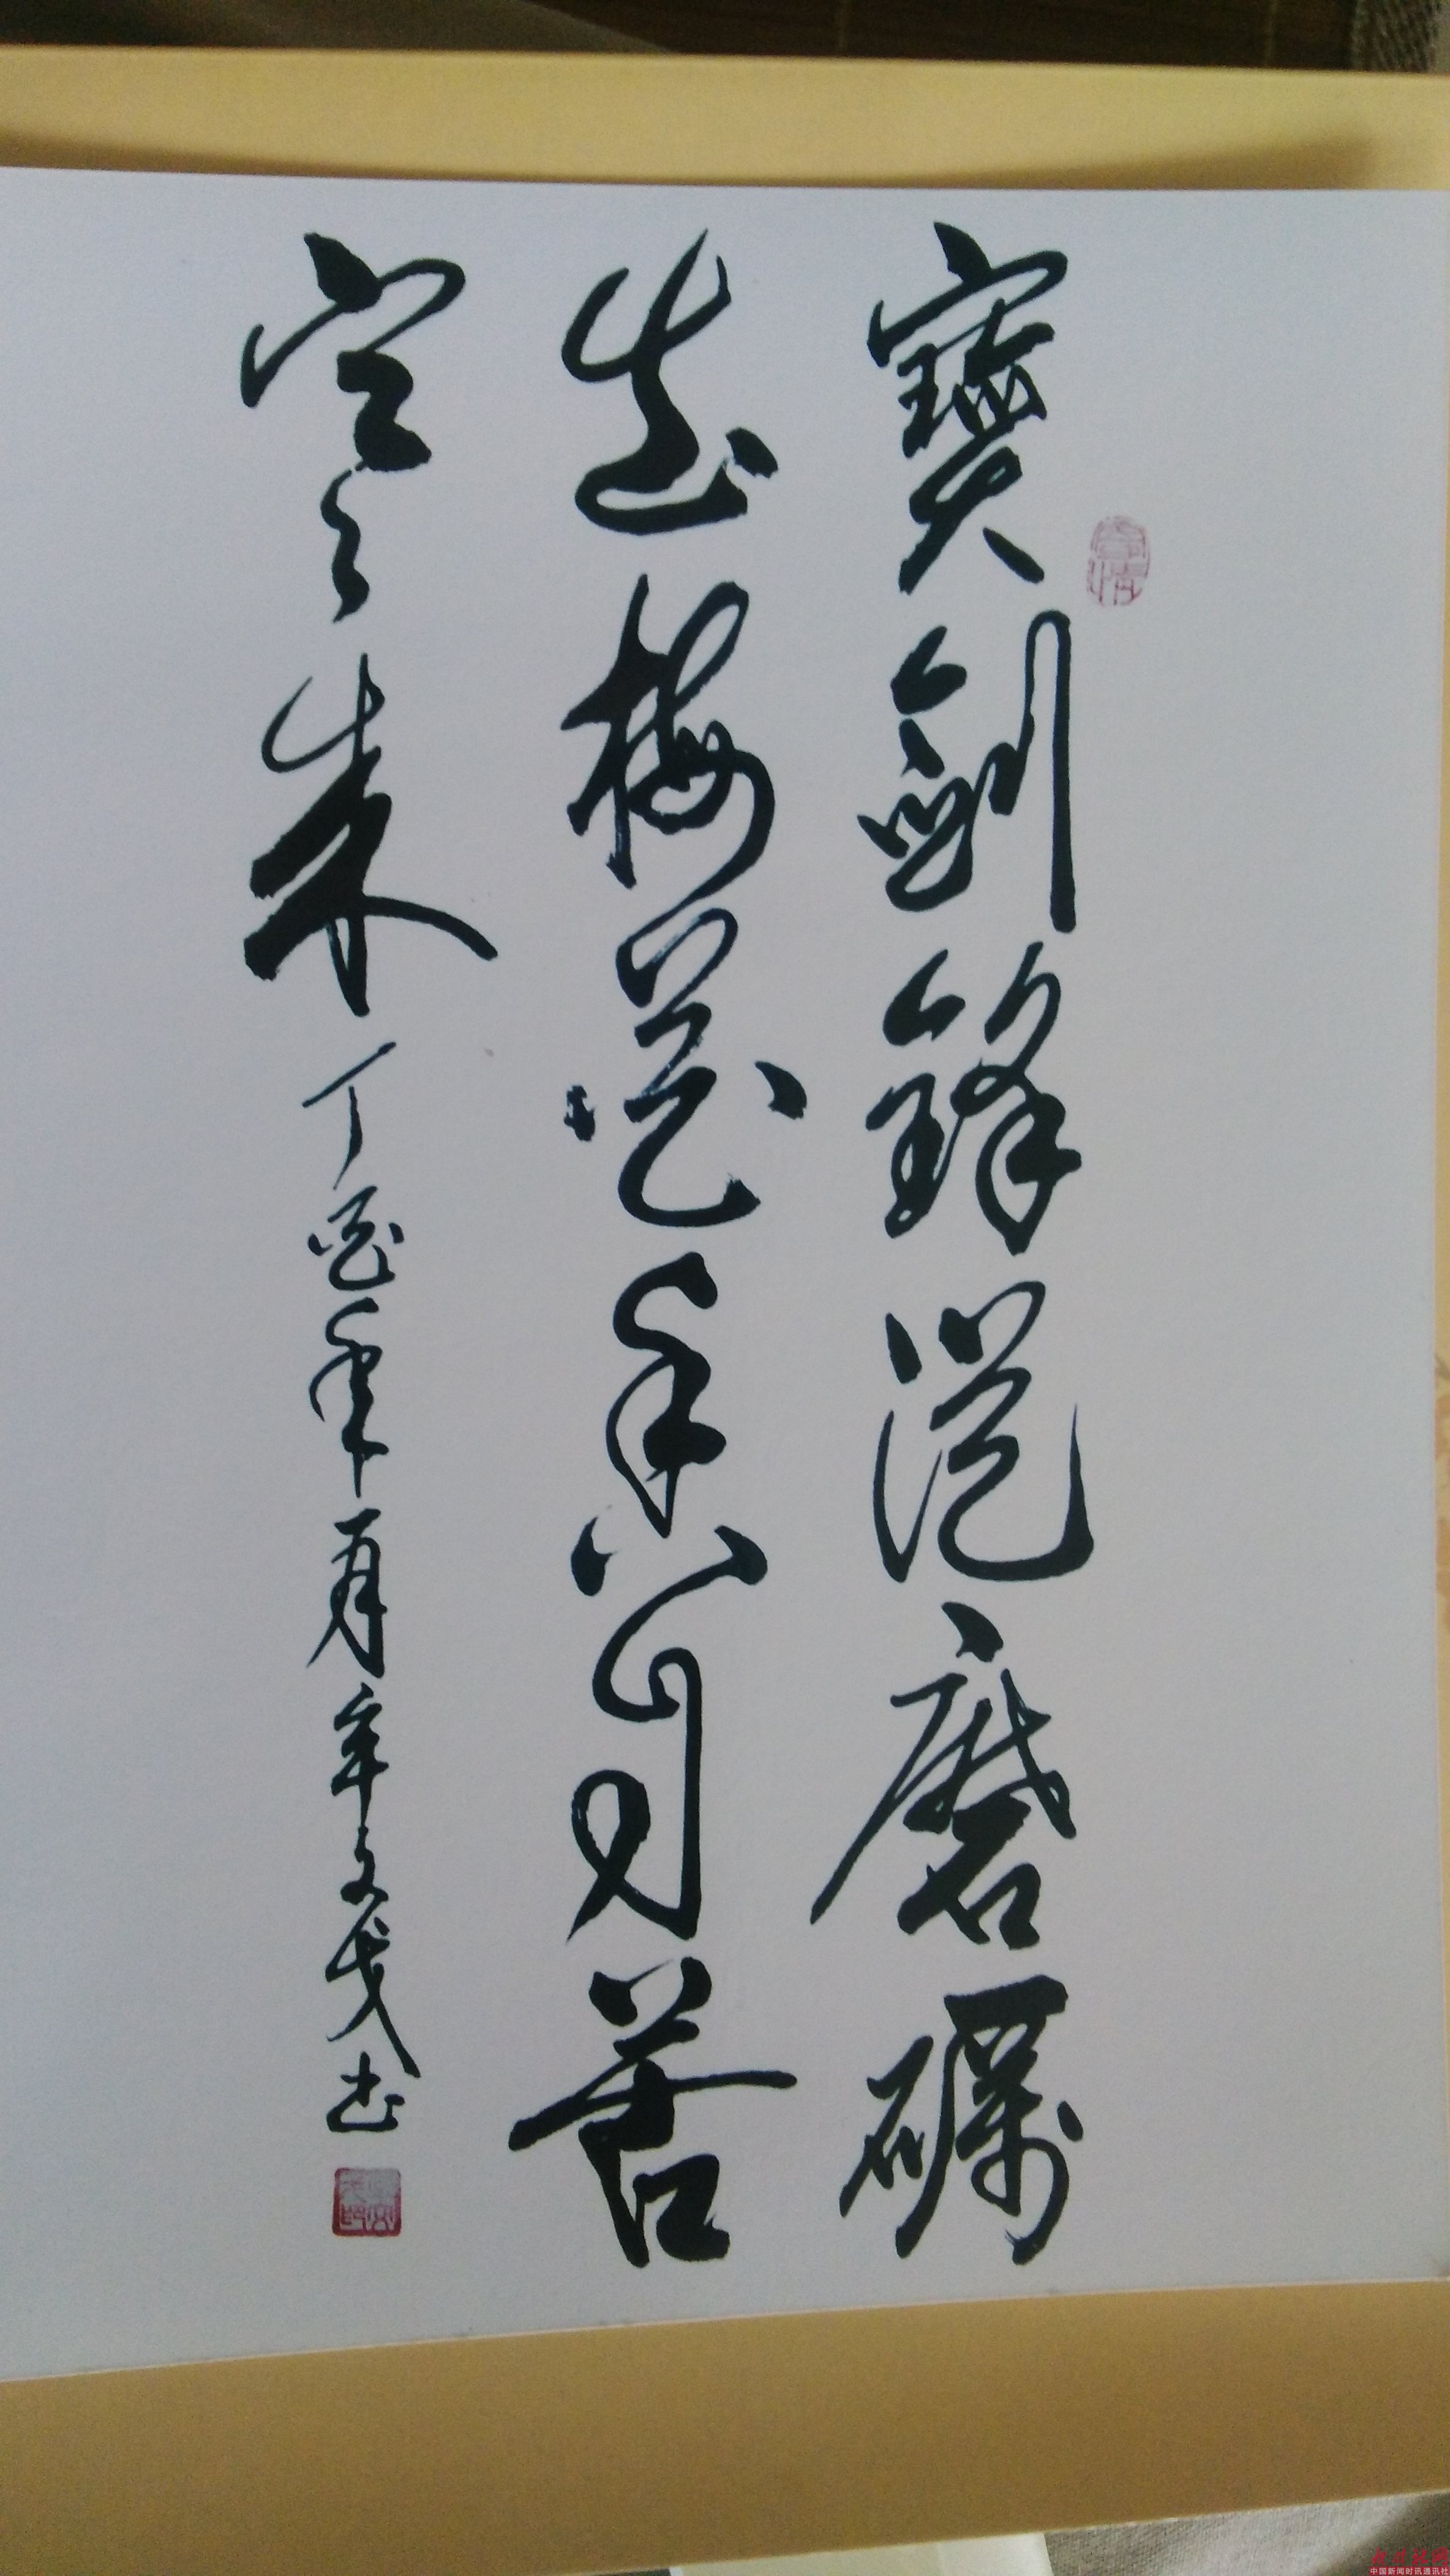 寶劍鋒從磨礪
出梅花香自苦
寒來 丁酉年 月 辛文戈书
中国新闻时讯通讯社